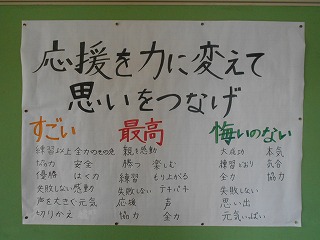 応援を力に変えて
思いをつなげ
すごい
練習以上 全力
安全
優勝 はく力
失敗しない 感動
声を大きく 元気
切りかえ
最高
親を感動
勝つ 楽しむ
練習 もり上がる
失敗しない テキパキ
応援 声
協力 全力
悔いのない
大成功 本気
練習どおり 気合
全力 協力
失敗しない
思い出
元気いっぱい